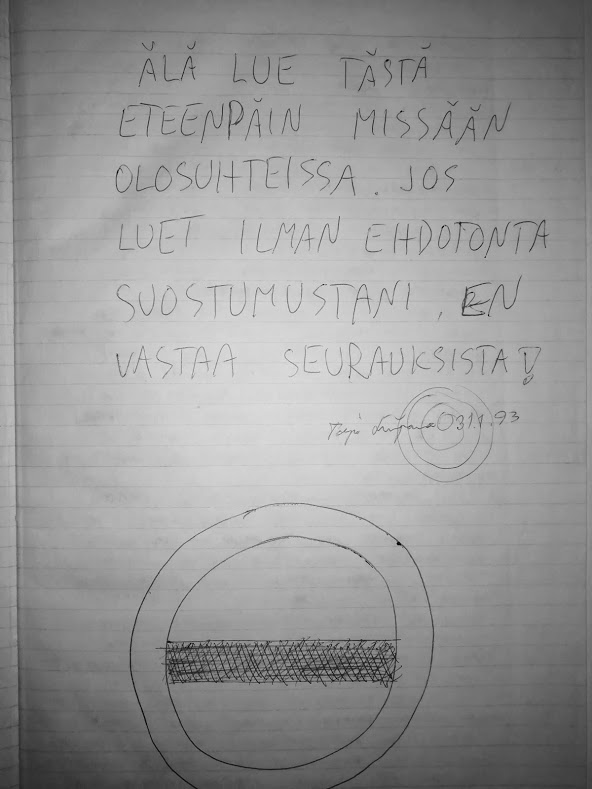 ÄLÄ LUE TÄSTÄ
ETEENPÄIN MISSÄÄN
OLOSUHTEISSA. JOS
LUET ILMAN EHDOTONTA
SUOSTUMUSTANI, EN
VASTAA SEURAUKSISTA!
31.1.93